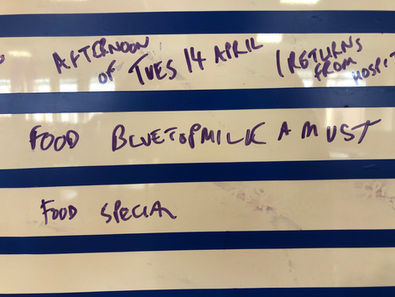 AFTERNOON
OF TUES 14 APRIL (RETURNS
FROM HOSPIT
FOOD BLUETOPMILK A MUST
FOOD SPECIAL